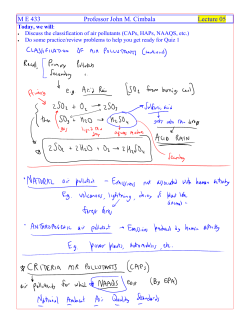 M E 433 Professor John M. Cimbala Lecture 05
Today, we will:
• Discuss the classification of air pollutants (CAPs, HAPs, NAAQS, etc.)
• Do some practice/review problems to help you get ready for Quiz 1
CLASSIFICATION OF AIR POLLUTANTS (continued)
Recall, Primary Pollutants
Secondary "
Primary
e.g. Acid Rain [SO2 from burning coal]
2SO2 + O2 → 2SO3
sulfuric acid
SO3 + H2O → H2SO4
gas
ACID RAIN
2SO2 + 2H2O + O2 → 2H2SO4
Secondary
• NATURAL air pollutant – Emissions not associated with human activity
E.g. volcanoes, lightning,
forest fires
• ANTHROPOGENIC air pollutant → Emissions produced by human activity
E.g. power plants, automobiles, etc.
* CRITERIA AIR POLLUTANTS (CAPs)
air pollutants for which NAAQS exist (By EPA)
National Ambient Air Quality Standards